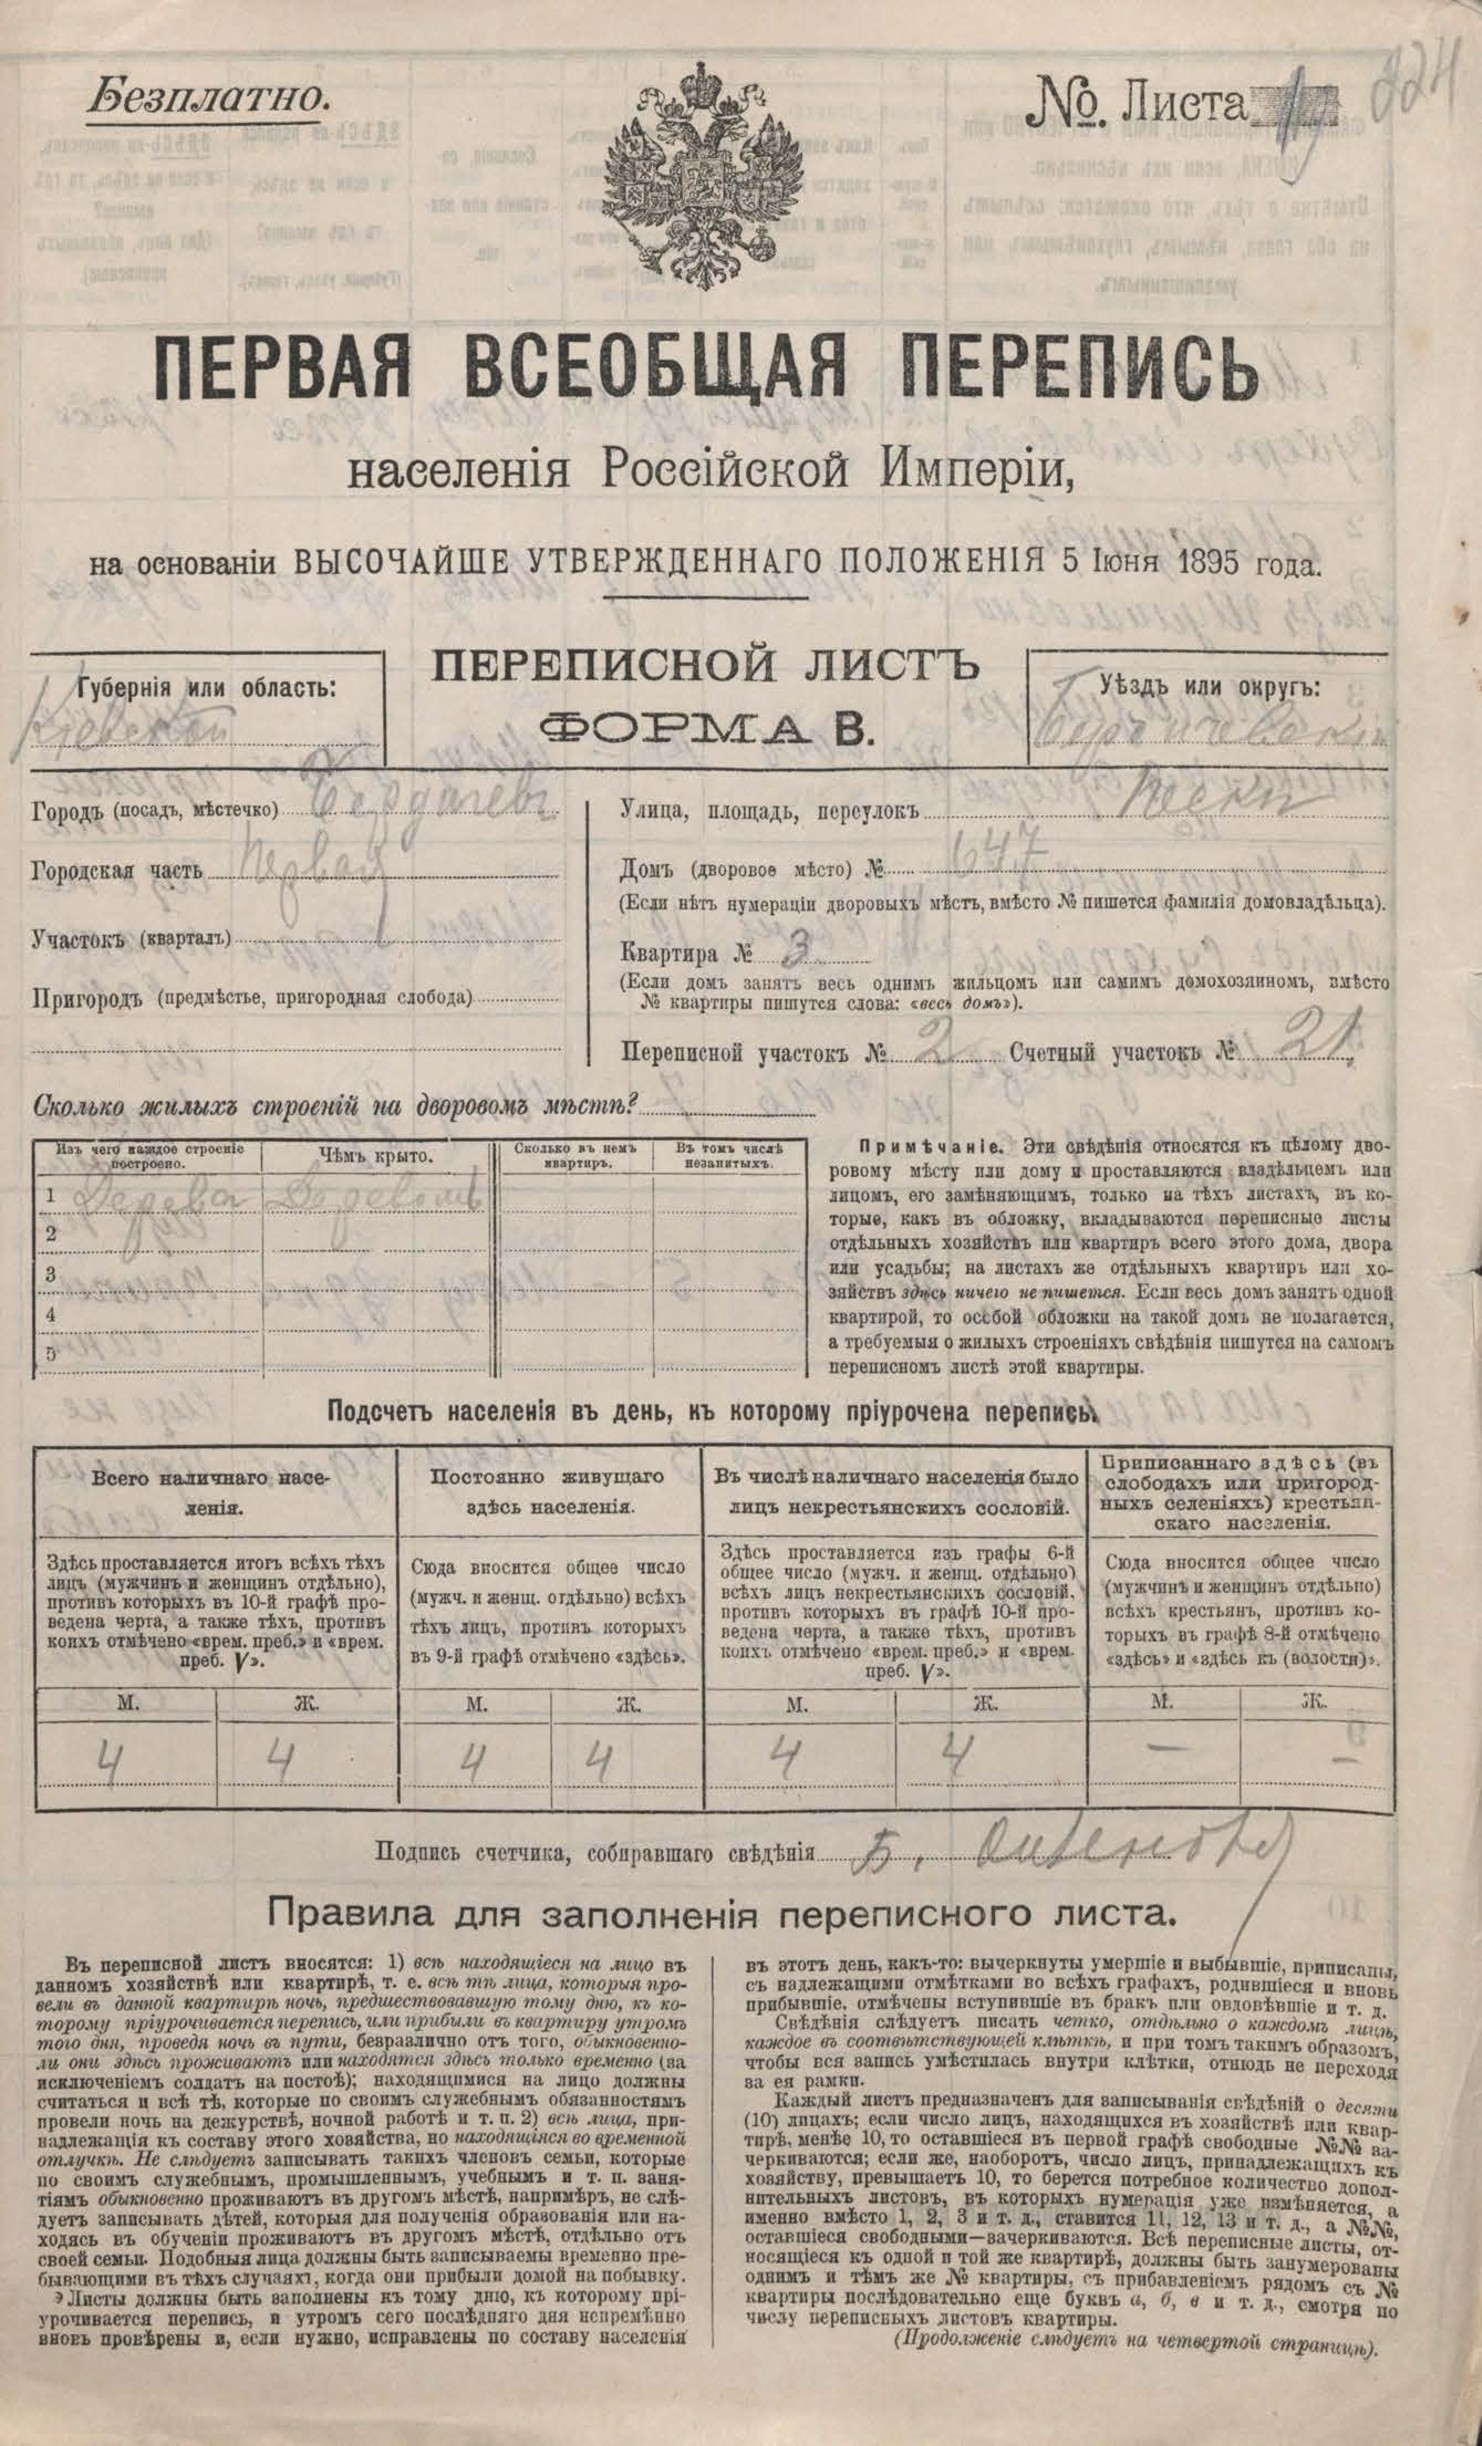 Безплатно.
№. Листа
224
ПЕРВАЯ ВСЕОБЩАЯ ПЕРЕПИСЬ
населенія Россійской Имперіи,
на основаніи ВЫСОЧАЙШЕ УТВЕРЖДЕННАГО ПОЛОЖЕНІЯ 5 Іюня 1895 года.
Губернія или область:
Кіевской
ПЕРЕПИСНОЙ ЛИСТЪ
ФОРМА В.
Уѣздъ или округъ:
Бердичевскій
Городъ (посадъ, мѣстечко) Бердичевъ
Городская часть Первая
Участокъ (кварталъ)
Пригородъ (предмѣстье, пригородная слобода)
Улица, площадь, переулокъ Пески
Домъ (дворовое мѣсто) № 647
(Если нѣтъ нумераціи дворовыхъ мѣстъ, вмѣсто № пишется фамилія домовладѣльца).
Квартира № 3
(Если домъ занятъ весь однимъ жильцомъ или самимъ домохозяиномъ, вмѣсто
№ квартиры пишутся слова: «весь домъ»).
Переписной участокъ № 2 Счетный участокъ № 21
Сколько жилыхъ строеній на дворовомъ мѣстѣ?
Изъ чего каждое строеніе построено.
Чѣмъ крыто.
Сколько въ немъ квартиръ.
Въ томъ числѣ незанятыхъ.
1 Дерева Деревомъ
2
3
4
5
Примѣчаніе. Эти свѣдѣнія относятся къ цѣлому дво-
ровому мѣсту или дому и проставляются владѣльцемъ или
лицомъ, его замѣняющимъ, только на тѣхъ листахъ, въ ко-
торые, какъ въ обложку, вкладываются переписные листы
отдѣльныхъ хозяйствъ или квартиръ всего этого дома, двора
или усадьбы; на листахъ же отдѣльныхъ квартиръ или хо-
зяйствъ здѣсь ничего не пишется. Если весь домъ занятъ одной
квартирой, то особой обложки на такой домъ не полагается,
а требуемыя о жилыхъ строеніяхъ свѣдѣнія пишутся на самомъ
переписномъ листѣ этой квартиры.
Подсчетъ населенія въ день, къ которому пріурочена перепись.
Всего наличнаго насе-
ленія.
Постоянно живущаго
здѣсь населенія.
Въ числѣ наличнаго населенія было
лицъ некрестьянскихъ сословій.
Приписаннаго здѣсь (въ
слободахъ или пригород-
ныхъ селеніяхъ) крестьян-
скаго населенія.
Здѣсь проставляется итогъ всѣхъ тѣхъ
лицъ (мужчинъ и женщинъ отдѣльно),
противъ которыхъ въ 10-й графѣ про-
ведена черта, а также тѣхъ, противъ
коихъ отмѣчено «врем. преб.» и «врем.
преб. V».
Сюда вносится общее число
(мужч. и женщ. отдѣльно) всѣхъ
тѣхъ лицъ, противъ которыхъ
въ 9-й графѣ отмѣчено «здѣсь».
Здѣсь проставляется изъ графы 6-й
общее число (мужч. и женщ. отдѣльно)
всѣхъ лицъ некрестьянскихъ сословій,
противъ которыхъ въ графѣ 10-й про-
ведена черта, а также тѣхъ, противъ
коихъ отмѣчено «врем. преб.» и «врем.
преб. V».
Сюда вносится общее число
(мужчинъ и женщинъ отдѣльно)
всѣхъ крестьянъ, противъ ко-
торыхъ въ графѣ 8-й отмѣчено
«здѣсь» и «здѣсь къ (волости)».
М. Ж. М. Ж. М. Ж. М. Ж.
4 4 4 4 4 4 — —
Подпись счетчика, собиравшаго свѣдѣнія Б.
Правила для заполненія переписного листа.
Въ переписной листъ вносятся: 1) всѣ находящіеся на лицо въ
данномъ хозяйствѣ или квартирѣ, т. е. всѣ тѣ лица, которыя про-
вели въ данной квартирѣ ночь, предшествовавшую тому дню, къ ко-
торому пріурочивается перепись, или прибыли въ квартиру утромъ
того дня, проведя ночь въ пути, безразлично отъ того, обыкновенно-
ли они здѣсь проживаютъ или находятся здѣсь только временно (за
исключеніемъ солдатъ на постоѣ); находящимися на лицо должны
считаться и всѣ тѣ, которые по своимъ служебнымъ обязанностямъ
провели ночь на дежурствѣ, ночной работѣ и т. п. 2) всѣ лица, при-
надлежащія къ составу этого хозяйства, но находящіяся во временной
отлучкѣ. Не слѣдуетъ записывать такихъ членовъ семьи, которые
по своимъ служебнымъ, промышленнымъ, учебнымъ и т. п. заня-
тіямъ обыкновенно проживаютъ въ другомъ мѣстѣ, напримѣръ, не слѣ-
дуетъ записывать дѣтей, которыя для полученія образованія или на-
ходясь въ обученіи проживаютъ въ другомъ мѣстѣ, отдѣльно отъ
своей семьи. Подобныя лица должны быть записываемы временно пре-
бывающими въ тѣхъ случаяхъ, когда они прибыли домой на побывку.
Листы должны быть заполнены къ тому дню, къ которому прі-
урочивается перепись, и утромъ сего послѣдняго дня непремѣнно
вновь провѣрены и, если нужно, исправлены по составу населенія
въ этотъ день, какъ-то: вычеркнуты умершіе и выбывшіе, приписаны,
съ надлежащими отмѣтками во всѣхъ графахъ, родившіеся и вновь
прибывшіе, отмѣчены вступившіе въ бракъ или овдовѣвшіе и т. д.
Свѣдѣнія слѣдуетъ писать четко, отдѣльно о каждомъ лицѣ,
каждое въ соотвѣтствующей клѣткѣ, и при томъ такимъ образомъ,
чтобы вся запись умѣстилась внутри клѣтки, отнюдь не переходя
за ея рамки.
Каждый листъ предназначенъ для записыванія свѣдѣній о десяти
(10) лицахъ; если число лицъ, находящихся въ хозяйствѣ или квар-
тирѣ, менѣе 10, то оставшіеся въ первой графѣ свободные №№ за-
черкиваются; если же, наоборотъ, число лицъ, принадлежащихъ къ
хозяйству, превышаетъ 10, то берется потребное количество допол-
нительныхъ листовъ, въ которыхъ нумерація уже измѣняется, а
именно вмѣсто 1, 2, 3 и т. д., ставится 11, 12, 13 и т. д., а №№,
оставшіеся свободными—зачеркиваются. Всѣ переписные листы, от-
носящіеся къ одной и той же квартирѣ, должны быть занумерованы
однимъ и тѣмъ же № квартиры, съ прибавленіемъ рядомъ съ №
квартиры послѣдовательно еще буквъ а, б, в и т. д., смотря по
числу переписныхъ листовъ квартиры.
(Продолженіе слѣдуетъ на четвертой страницѣ).